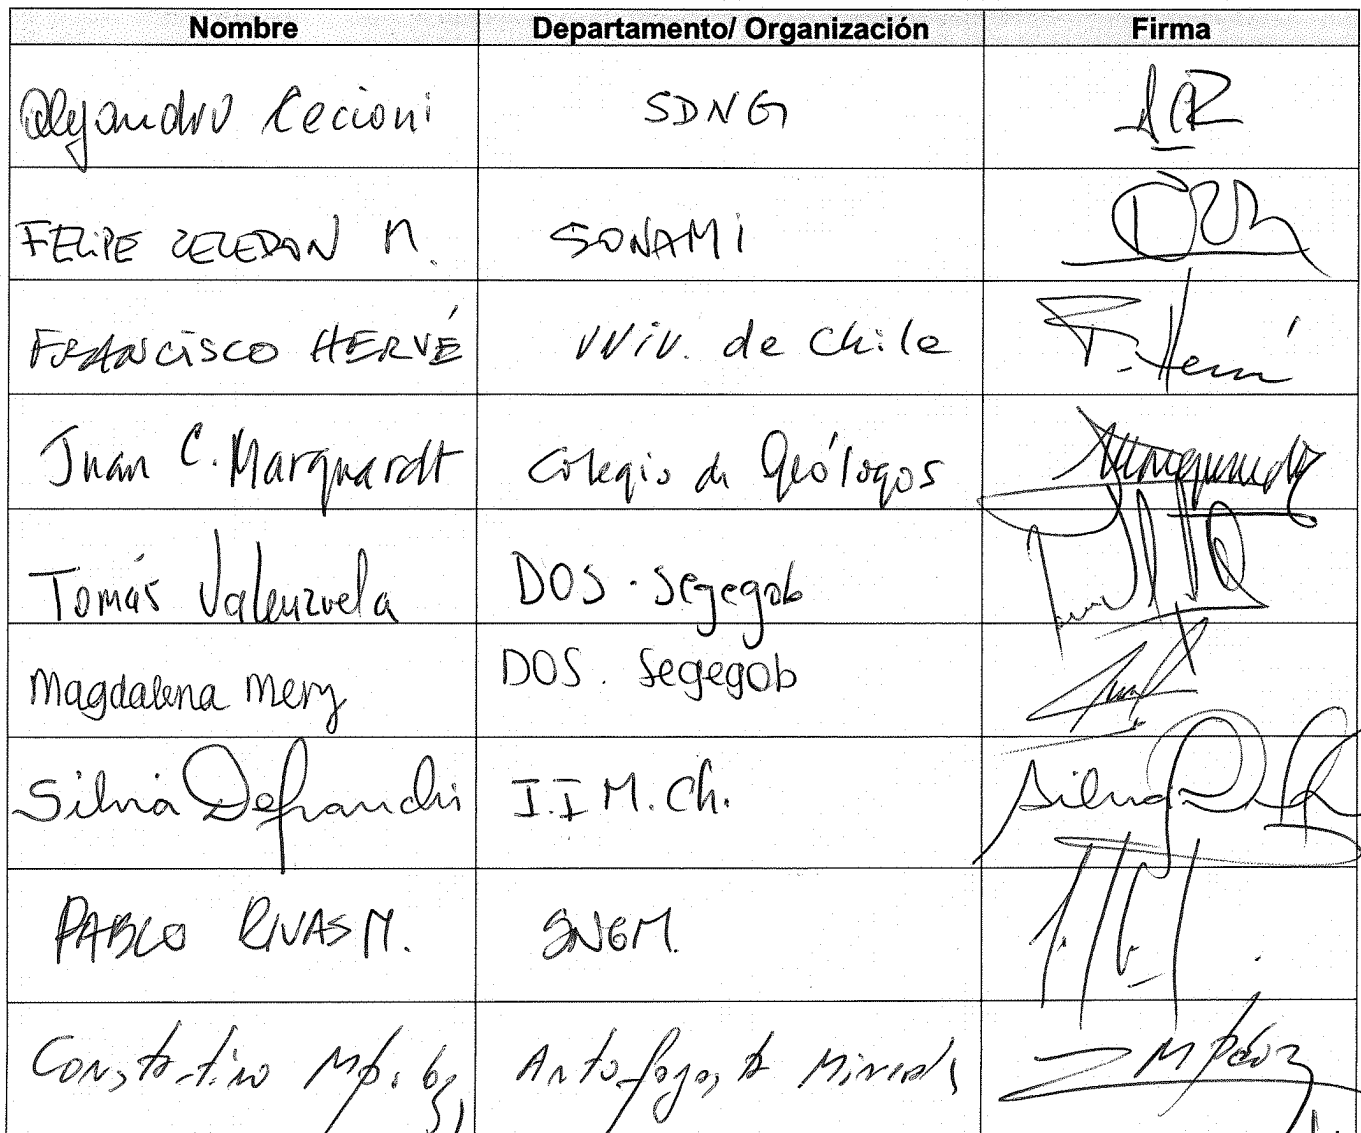 Nombre Departamento/ Organización Firma
Alejandro Cecioni SDNG ACR
FELIPE CELEDON M. SONAMI
FRANCISCO HERVÉ UNIV. de Chile F. Hervé
Juan C. Marquardt Colegio de Geólogos Marquardt
Tomás Valenzuela DOS. Segegob
Magdalena Mery DOS. Segegob
Silvia Defranchi I.I M. Ch. Silvia
PABLO RIVAS M. SNGM.
Constantino Antofagasta Minerals